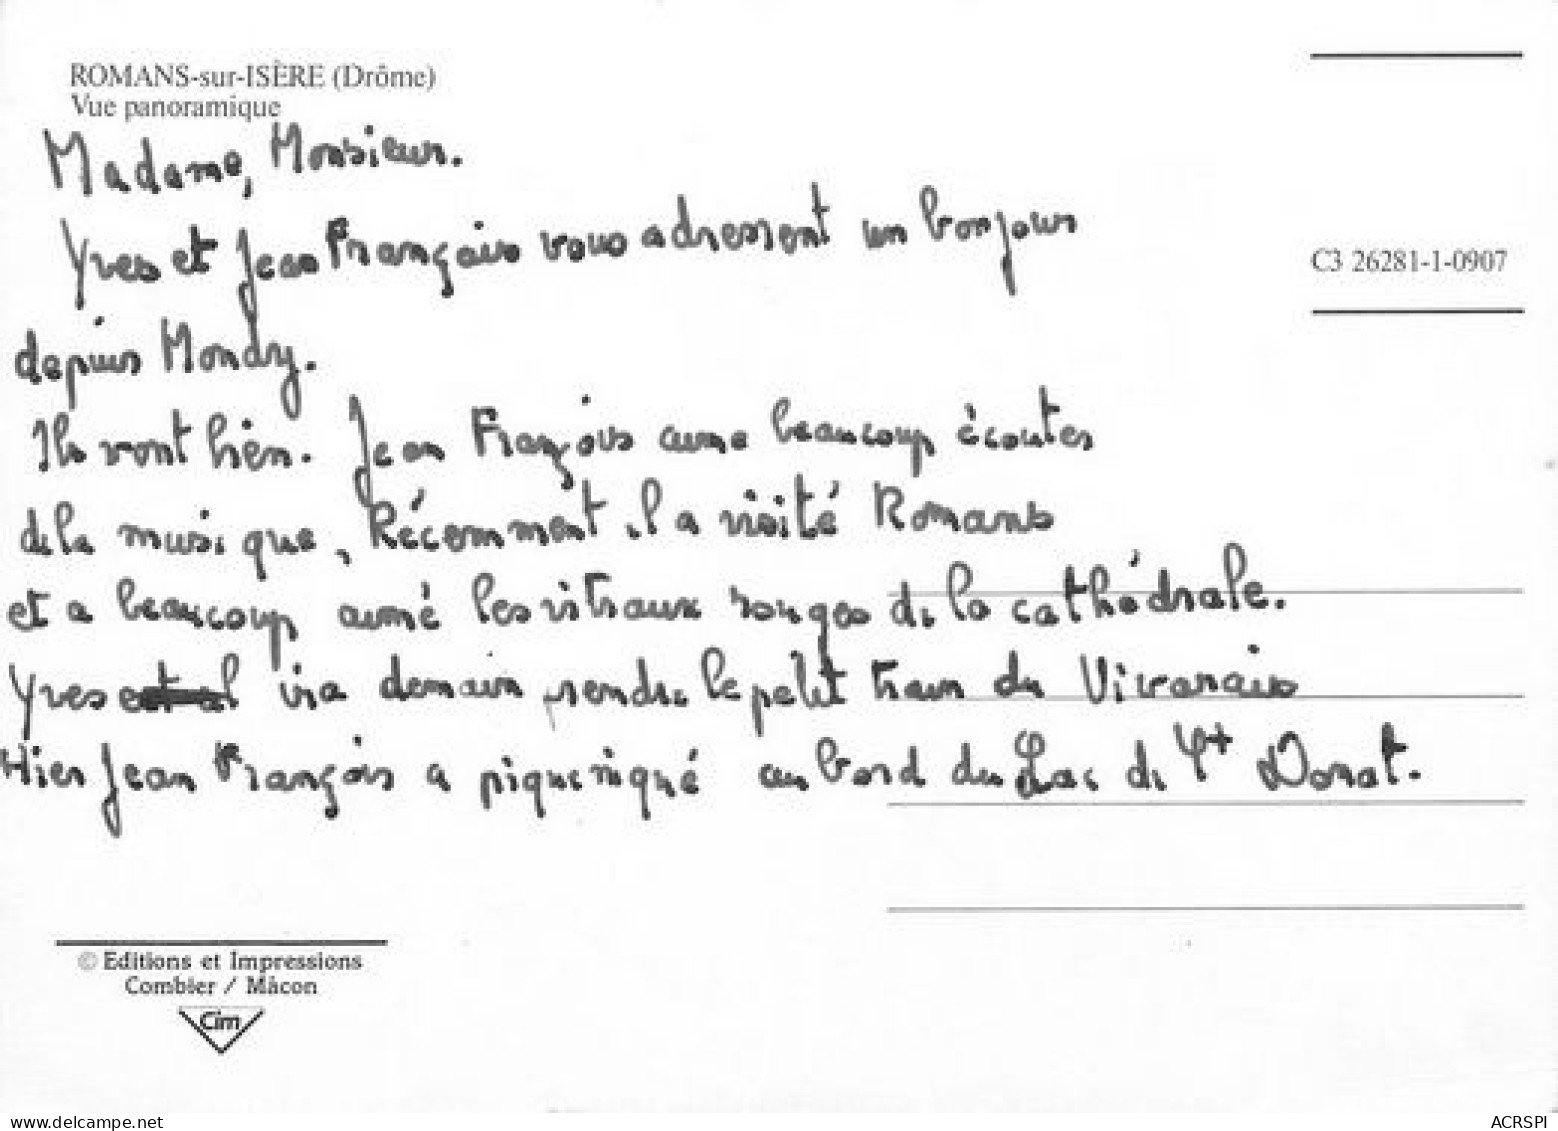 ROMANS-sur-ISÈRE (Drôme)
Vue panoramique
Madame, Monsieur.
Yves et Jean François vous adressent un bonjour
C3 26281-1-0907
depuis Mondy.
Ils vont bien. Jean François aime beaucoup écouter
de la musique, Récemment il a visité Romans
et a beaucoup aimé les vitraux rouges de la cathédrale.
Yves ira demain prendre le petit train du Vivarais
Hier Jean François a piqueniqué au bord du Lac de St Donat.
© Editions et Impressions
Combier / Mâcon
Cim
www.delcampe.net
ACRSPI